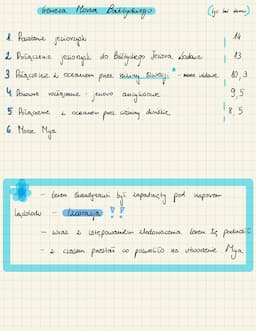 Geneza Morza Bałtyckiego (tyś. lat temu)
1. Powstanie jeziornych 14
2 Połączenie jeziornych do Bałtyckiego Jeziora 13
3 Połączenie z oceanem przez 10,3
4 Ponowne rozłączenie - jezioro ancylusowe 9,5
5 Połączenie z oceanem przez cieśniny duńskie 8,5
6 Morze Mya
- teren Skandynawii był zapadnięty pod naporem
lądolodu - izostazja !!
- wraz z ustępowaniem zlodowacenia teren się podnosił
- z czasem przestał co pozwoliło na utworzenie Mya